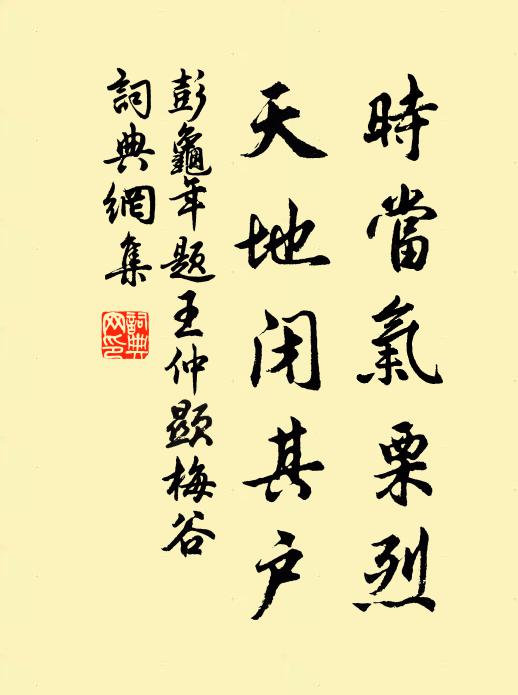 時當氣栗烈
天地闭其户
彭龜年題王仲顯梅谷
詞典網集
詞典網印